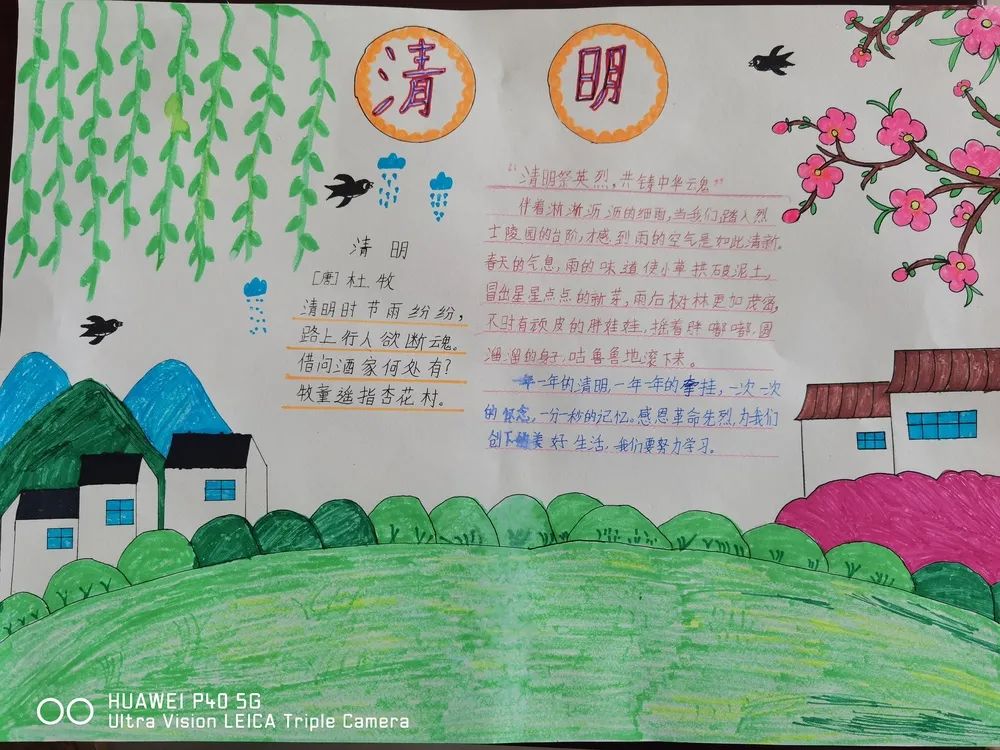 清 明
清 明
[唐] 杜 牧
清明时节雨纷纷,
路上行人欲断魂。
借问酒家何处有?
牧童遥指杏花村。
“清明祭英烈,共铸中华云魂”
伴着淅淅沥沥的细雨,当我们踏入烈
士陵园的台阶,才感到雨的空气是如此清新。
春天的气息,雨的味道使小草拱破泥土,
冒出星星点点的新芽,雨后树林更加茂密,
不时有顽皮的胖娃娃,摇着胖嘟嘟,圆
溜溜的身子,咕鲁鲁地滚下来。
一年的清明,一年一年的牵挂,一次一次
的怀念,一分一秒的记忆。感恩革命先烈,为我们
创下的美好生活,我们要努力学习。
HUAWEI P40 5G
Ultra Vision LEICA Triple Camera